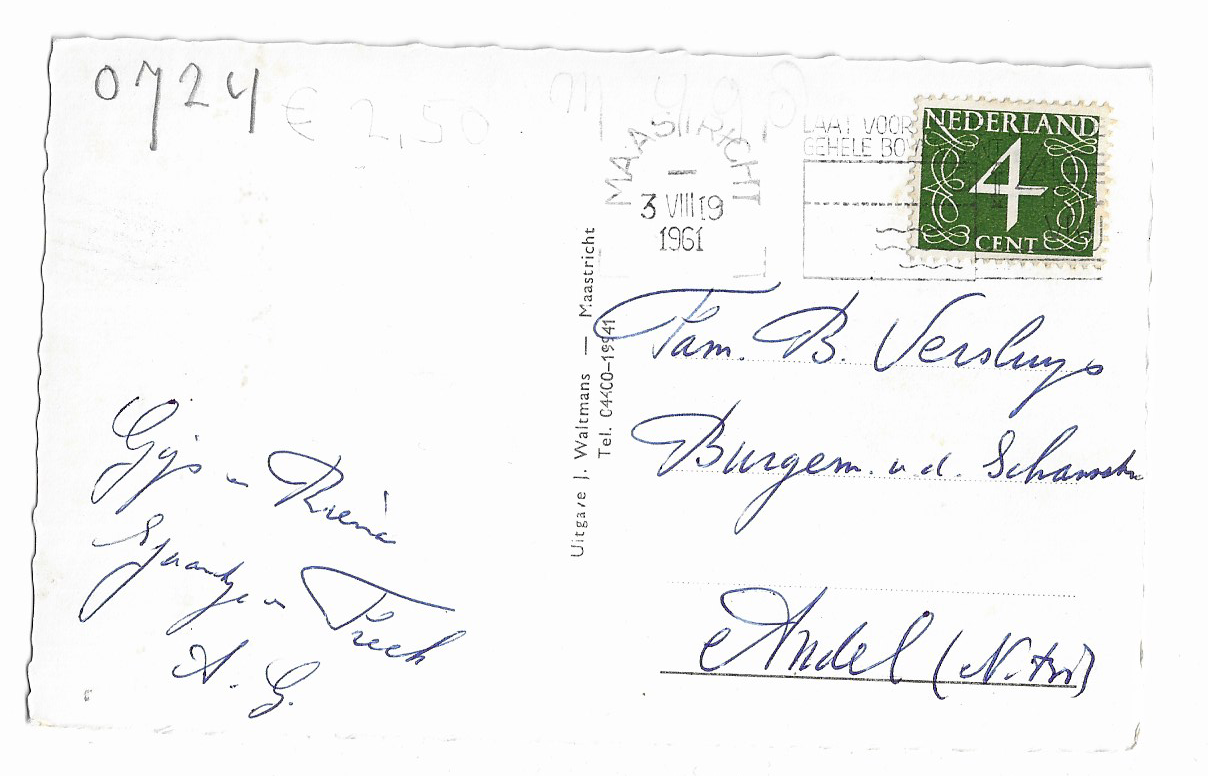 0724
€ 2,50
MAASTRICHT
3 VIII 19
1961
LAAT VOOR
GEHELE
NEDERLAND
4
CENT
Uitgave J. Waltmans — Maastricht
Tel. 04400-19941
Fam. B. Versluys
Burgem. v.d.
Andel (N.Br)
Gijs en Riená
Sjaantje en
A. G.